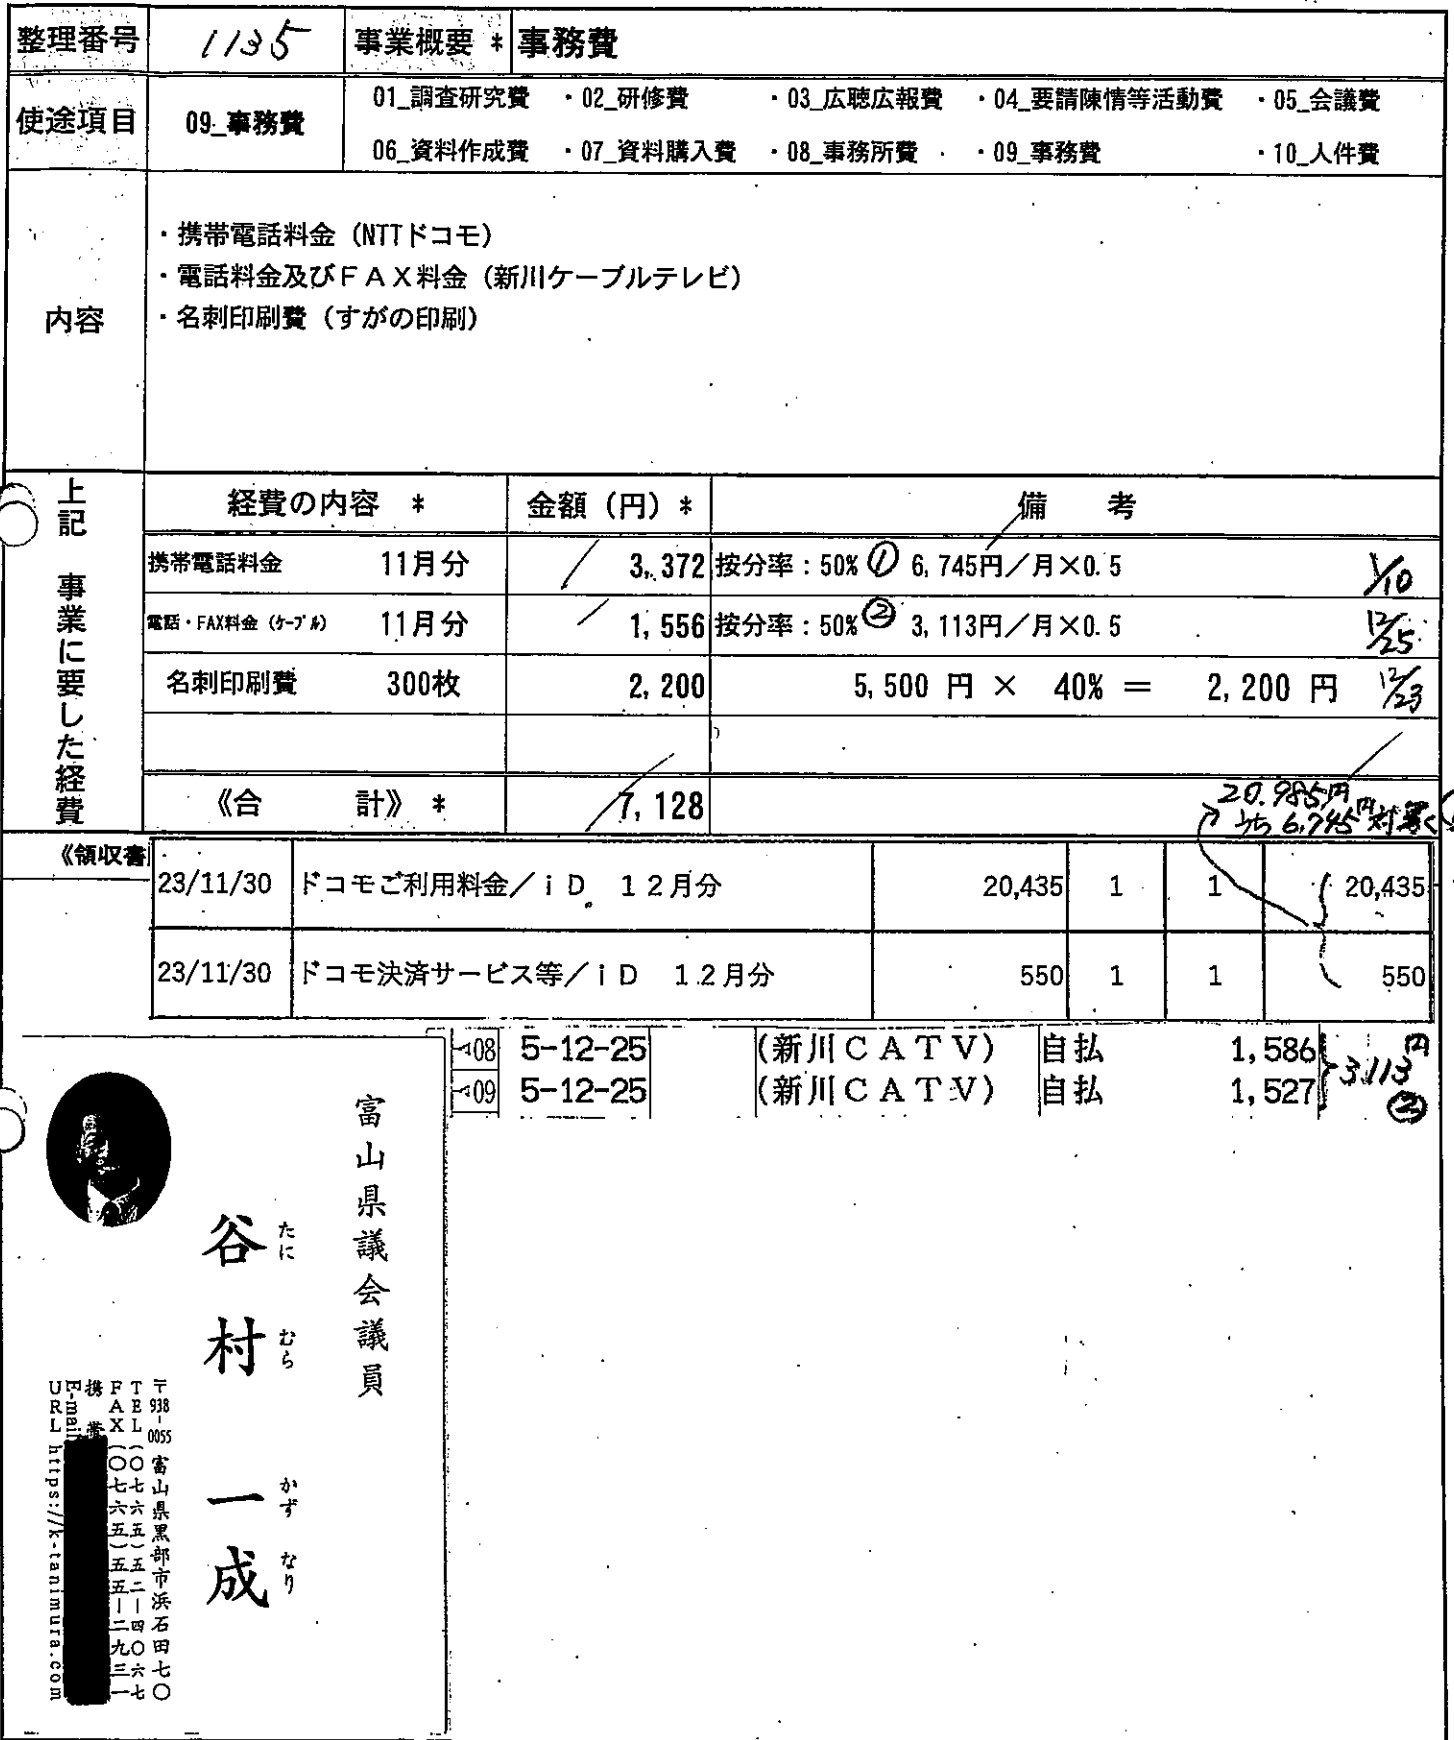 整理番号 1135 事業概要 * 事務費
使途項目 09_事務費 01_調査研究費 ・02_研修費 ・03_広聴広報費 ・04_要請陳情等活動費 ・05_会議費
06_資料作成費 ・07_資料購入費 ・08_事務所費 ・09_事務費 ・10_人件費
内容
・携帯電話料金（NTTドコモ）
・電話料金及びＦＡＸ料金（新川ケーブルテレビ）
・名刺印刷費（すがの印刷）
上記 事業に要した経費
経費の内容 * 金額（円）* 備 考
携帯電話料金 11月分 3,372 按分率：50% ① 6,745円／月×0.5 1/10
電話・FAX料金（ケーブル） 11月分 1,556 按分率：50% ② 3,113円／月×0.5 12/25
名刺印刷費 300枚 2,200 5,500 円 × 40% ＝ 2,200 円 12/23
《合 計》 * 7,128
20.985円
うち 6,745円
《領収書
23/11/30 ドコモご利用料金／ｉＤ １２月分 20,435 1 1 20,435
23/11/30 ドコモ決済サービス等／ｉＤ １２月分 550 1 1 550
08 5-12-25 (新川ＣＡＴＶ) 自払 1,586
09 5-12-25 (新川ＣＡＴＶ) 自払 1,527
3,113円
②
富山県議会議員
谷村一成
たに むら かず なり
〒938-0055 富山県黒部市浜石田七〇
ＴＥＬ（〇七六五）五二ー四〇六七
ＦＡＸ（〇七六五）五五ー二九三一
携帯
E-mail
URL https://k-tanimura.com